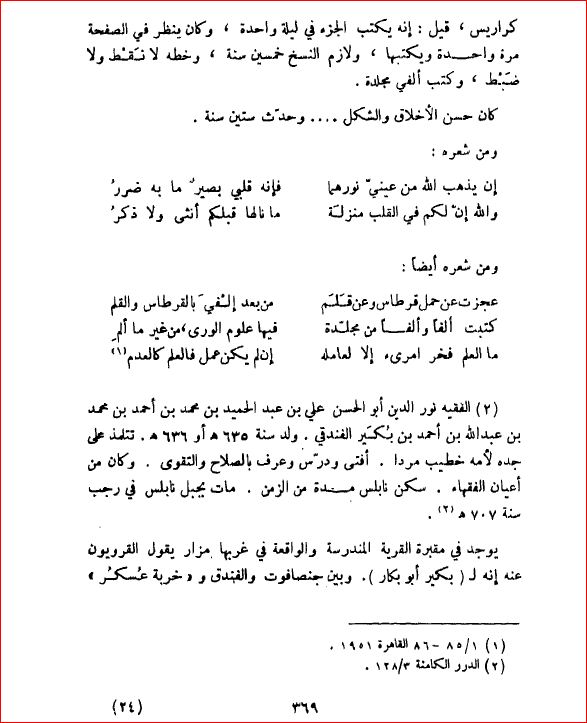 كواريس ، قيل : إنه يكتب الجزء في ليلة واحدة ، وكان ينظر في الصفحة
مرة واحدة ويكتبها ، ولازم النسخ خمسين سنة ، وخطه لا نَقْط ولا
ضَبْط ، وكتب ألفي مجلدة .
كان حسن الأخلاق والشكل .... وحدّث ستين سنة .
ومن شعره :
إن يذهب الله من عينيّ نورهما فإنه قلبي بصيرٌ ما به ضررُ
والله إنّ لكم في القلب منزلة ما نالها قبلكم أنثى ولا ذكرُ
ومن شعره أيضاً :
عجزت عن حمل قرطاس وعن قَلَم من بعد إلْفي بالقرطاس والقلم
كتبت ألفاً وألفاً من مجلدة فيها علوم الورى ، من غير ما ألمِ
ما العلم فخر امرىء إلا لعامله إن لم يكن عمل فالعلم كالعدم (١)
(٢) الفقيه نور الدين أبو الحسن علي بن عبد الحميد بن محمد بن أحمد بن محمد
بن عبدالله بن أحمد بن بُكَيْر الفندقي . ولد سنة ٦٣٥ ه أو ٦٣٦ ه . تتلمذ على
جده لأمه خطيب مردا . أفتى ودرّس وعرف بالصلاح والتقوى . وكان من
أعيان الفقهاء . سكن نابلس مدة من الزمن . مات بجبل نابلس في رجب
سنة ٧٠٧ ه (٢) .
يوجد في مقبرة القرية المندرسة والواقعة في غربها مزار يقول القرويون
عنه إنه لـ ( بكير أبو بكار ) . وبين جنصافوت والفندق و « خربة عُسكُر »
(١) ١/ ٨٥ – ٨٦ القاهرة ١٩٥١ .
(٢) الدرر الكامنة ٣/ ١٢٨ .
٣٦٩ (٢٤)